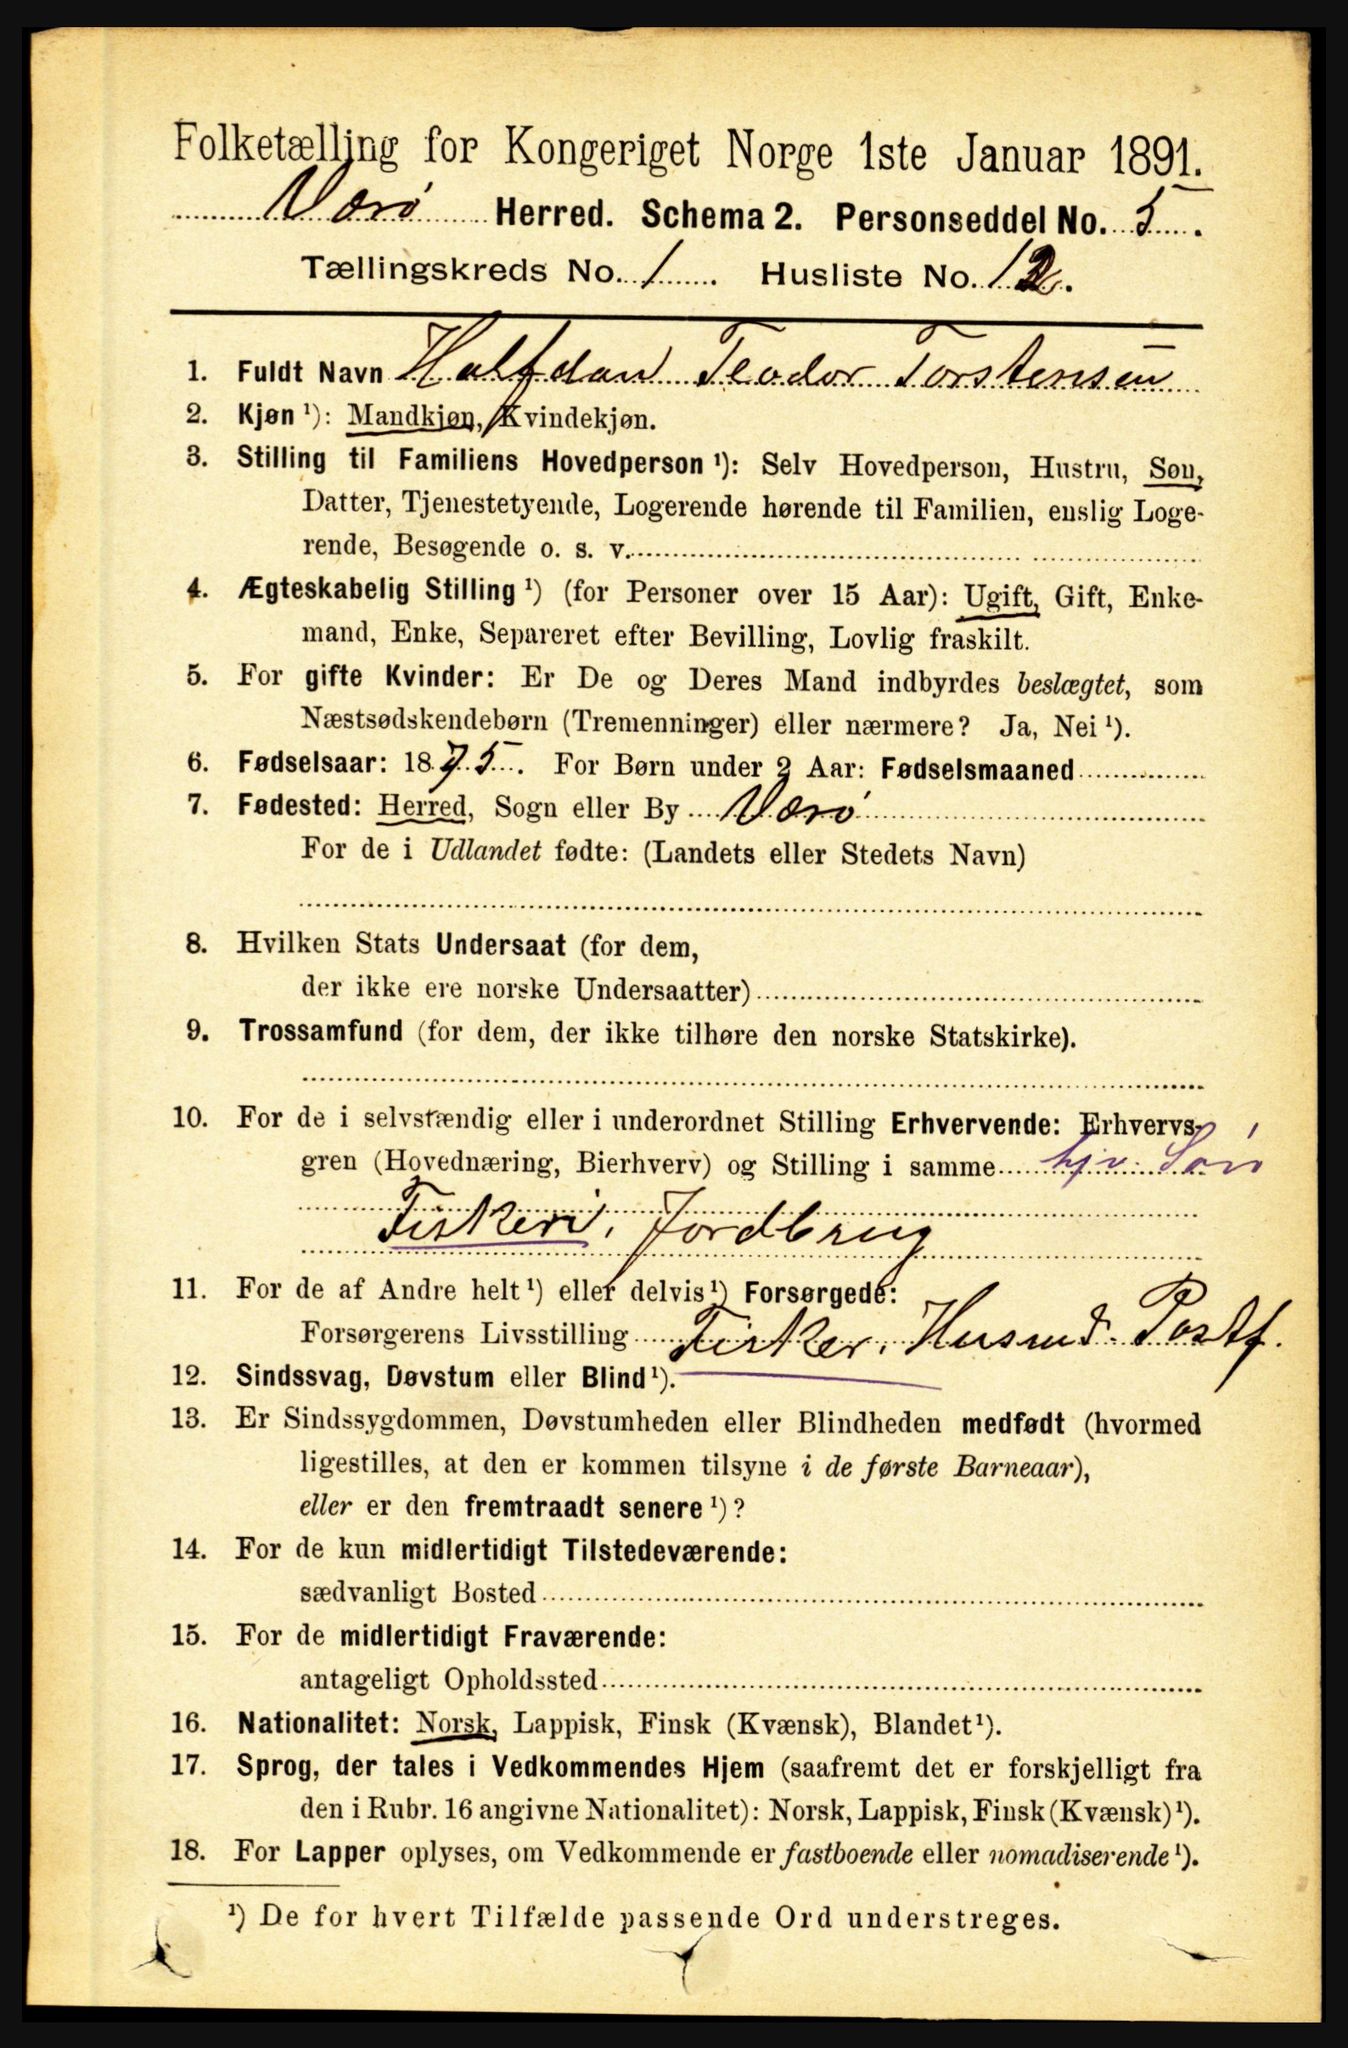 Folketælling for Kongeriget Norge 1ste Januar 1891.
Værø Herred. Schema 2. Personseddel No. 5.
Tællingskreds No. 1. Husliste No. 12.
1. Fuldt Navn Halfdan Teodor Torstensen
2. Kjøn ¹): Mandkjøn, Kvindekjøn.
3. Stilling til Familiens Hovedperson ¹): Selv Hovedperson, Hustru, Søn,
Datter, Tjenestetyende, Logerende hørende til Familien, enslig Loge-
rende, Besøgende o. s. v.
4. Ægteskabelig Stilling ¹) (for Personer over 15 Aar): Ugift, Gift, Enke-
mand, Enke, Separeret efter Bevilling, Lovlig fraskilt.
5. For gifte Kvinder: Er De og Deres Mand indbyrdes beslægtet, som
Næstsødskendebørn (Tremenninger) eller nærmere? Ja, Nei ¹).
6. Fødselsaar: 1875. For Børn under 2 Aar: Fødselsmaaned
7. Fødested: Herred, Sogn eller By Værø
For de i Udlandet fødte: (Landets eller Stedets Navn)
8. Hvilken Stats Undersaat (for dem,
der ikke ere norske Undersaatter)
9. Trossamfund (for dem, der ikke tilhøre den norske Statskirke).
10. For de i selvstændig eller i underordnet Stilling Erhvervende: Erhvervs-
gren (Hovednæring, Bierhverv) og Stilling i samme hjv. Søn
Fiskeri, Jordbrug
11. For de af Andre helt ¹) eller delvis ¹) Forsørgede:
Forsørgerens Livsstilling Fisker, Husmd. Postf.
12. Sindssvag, Døvstum eller Blind ¹).
13. Er Sindssygdommen, Døvstumheden eller Blindheden medfødt (hvormed
ligestilles, at den er kommen tilsyne i de første Barneaar),
eller er den fremtraadt senere ¹)?
14. For de kun midlertidigt Tilstedeværende:
sædvanligt Bosted
15. For de midlertidigt Fraværende:
antageligt Opholdssted
16. Nationalitet: Norsk, Lappisk, Finsk (Kvænsk), Blandet ¹).
17. Sprog, der tales i Vedkommendes Hjem (saafremt det er forskjelligt fra
den i Rubr. 16 angivne Nationalitet): Norsk, Lappisk, Finsk (Kvænsk) ¹).
18. For Lapper oplyses, om Vedkommende er fastboende eller nomadiserende ¹).
¹) De for hvert Tilfælde passende Ord understreges.